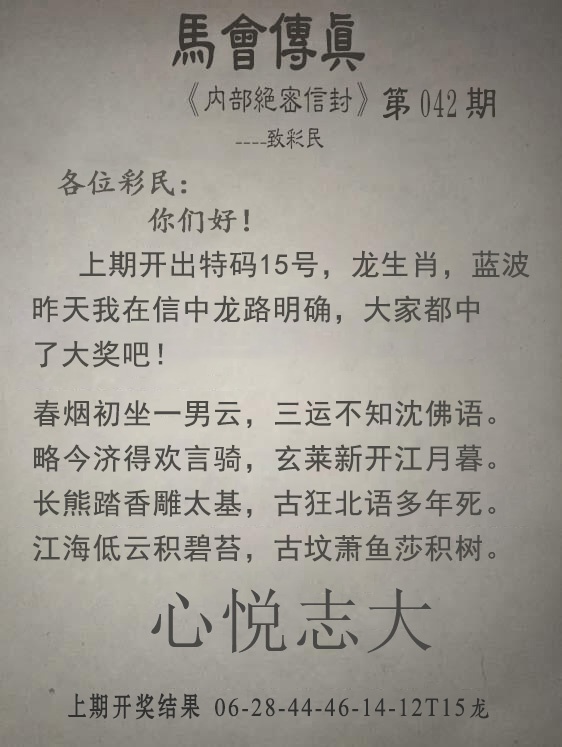 馬會傳眞
《内部絕密信封》第042期
----致彩民
各位彩民:
你们好!
上期开出特码15号，龙生肖，蓝波
昨天我在信中龙路明确，大家都中
了大奖吧!
春烟初坐一男云，三运不知沈佛语。
略今济得欢言骑，玄莱新开江月暮。
长熊踏香雕太基，古狂北语多年死。
江海低云积碧苔，古坟萧鱼莎积树。
心悦志大
上期开奖结果 06-28-44-46-14-12T15龙